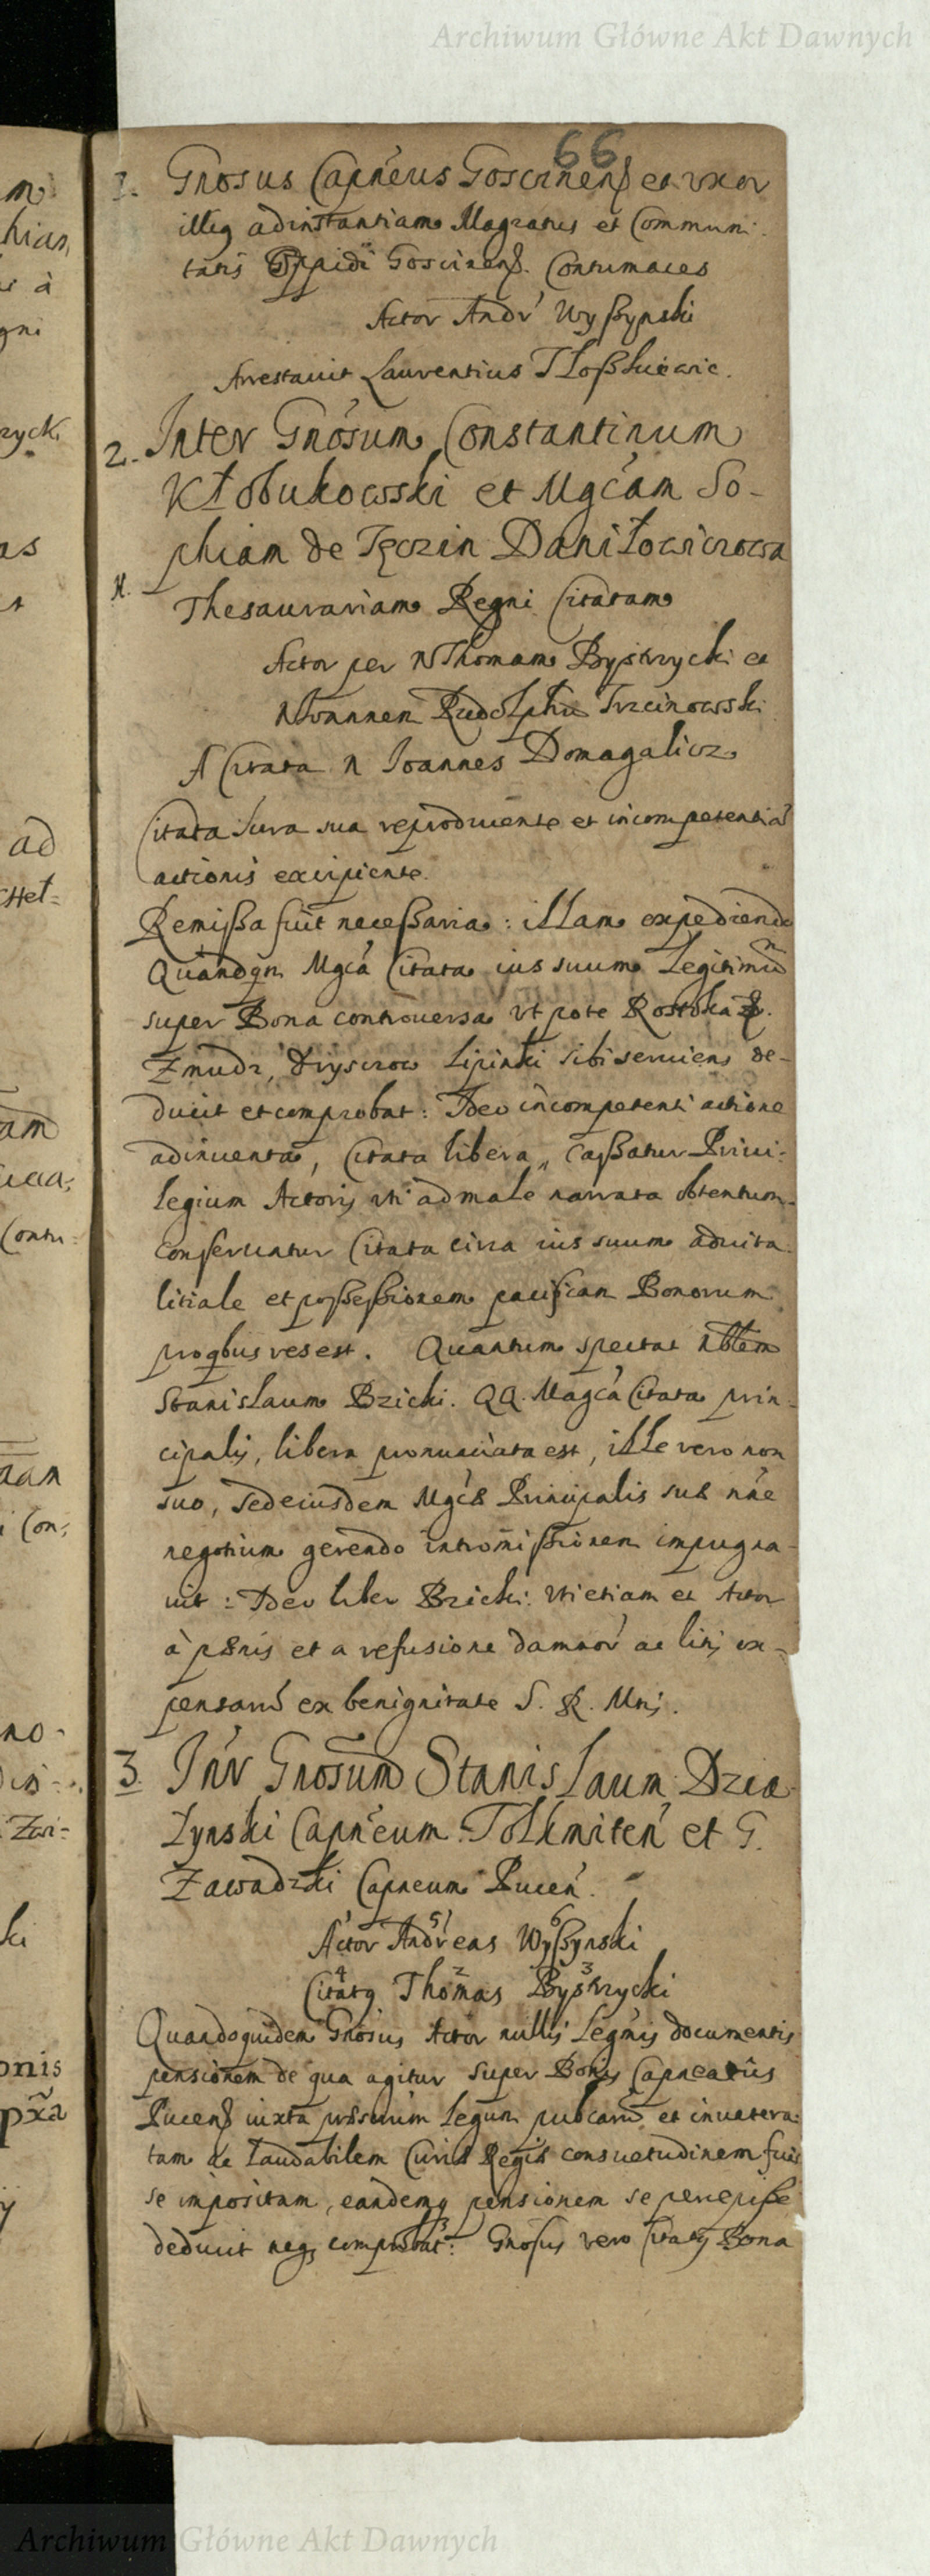 Archiwum Główne Akt Dawnych
66
1. Gnosus Capneus Goscinens et uxor
illig ad instantiam Magratus et Communi-
tatis Oppidi Goscinens. Contumaces
Actor Andr Wyssynski
Arrestavit Laurentius
2. Inter Gnosum Constantinum
Kłobukowski et Mgcam So-
phiam de Tęczin Daniłowiczowa
Thesaurariam Regni Citatam
Actor per N Thomam Bystrzycki et
N Ioannem Rudolphu Trzcinowski
A Citata N Ioannes Domagalicz
Citata Iura sua reproducente et incompetentia
actionis excipiente.
Remissa fuit necessaria: illam expediendo
Quandoqm Mgca Citata ius suum Legitimu
super Bona controversa ut pote Rostoka &.
Zmudz, Lipinki sibi serviens de-
ducit et comprobat: Ideo incompetenti actione
adinventa, Citata libera, Cassatur Privi-
legium Actoris uti ad male narrata obtentum
conservatur Citata circa ius suum advita
litiale et possessionem pacificam Bonorum
pro qbus res est. Quantum spectat Nblem
Stanislaum Bzicki. QQ. Magca Citata prin-
cipalis, libera pronunciata est, ille vero non
suo, sed eiusdem Mgcæ Principalis sub nne
negotium gerendo intromissionem impugna-
vit: Ideo liber Bzicki: uti etiam et Actor
à pænis et a refusione damnor ac litis ex-
pensaru ex benignitate S. R. Mtis.
3. Intr Gnosum Stanislaum Dzia
lynski Capneum Tolkmiten et G.
Zawadzki Capneum Pucen.
Actor Andreas Wyssynski
Citatq Thomas Bystrzycki
Quandoquidem Gnosus Actor nullis Legmis documentis
pensionem de qua agitur super Bonis Capneatus
Pucens iuxta præscrium legum publicaru et invetera-
tam ac laudabilem Curiæ Regiæ consuetudinem fuis
se impositam, eandemq pensionem se percepisse
deducit neq comprobat: Gnosus vero Citatus Bona
Archiwum Główne Akt Dawnych